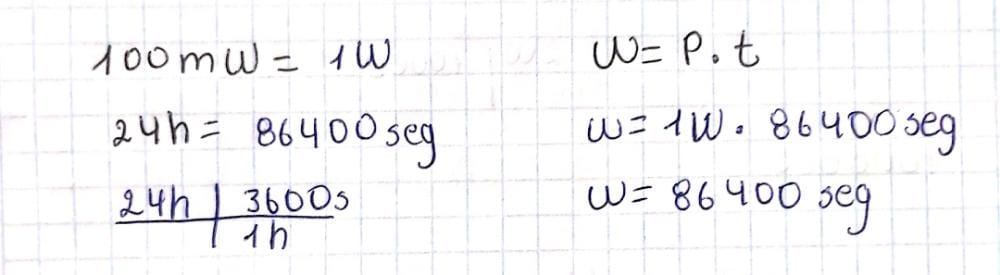 100mW = 1W
24h = 86400seg
24h | 3600s
1h
W = P. t
W = 1W. 86400seg
W = 86400 seg